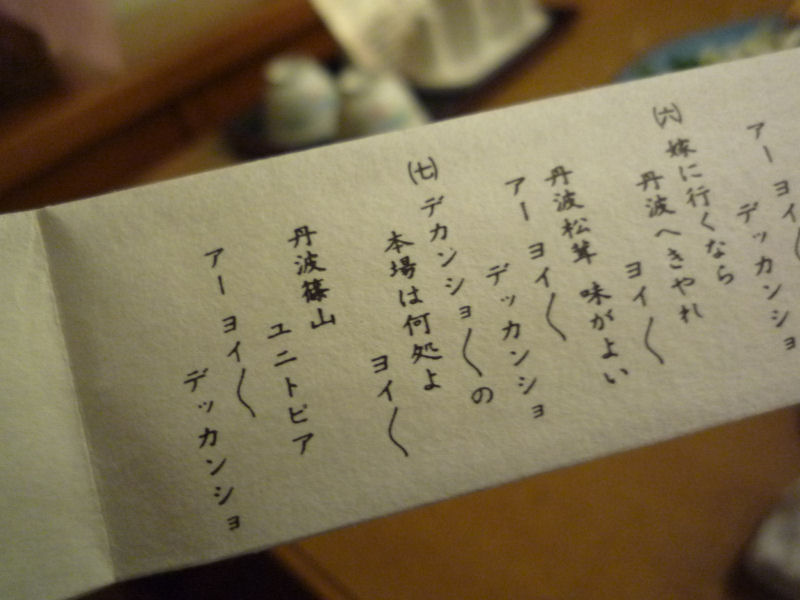 アー ヨイ〱
デッカンショ
㈥ 嫁に行くなら
丹波へきやれ
ヨイ〱
丹波松茸 味がよい
アー ヨイ〱
デッカンショ
㈦ デカンショ〱の
本場は何処よ
ヨイ〱
丹波篠山
ユニトピア
アー ヨイ〱
デッカンショ